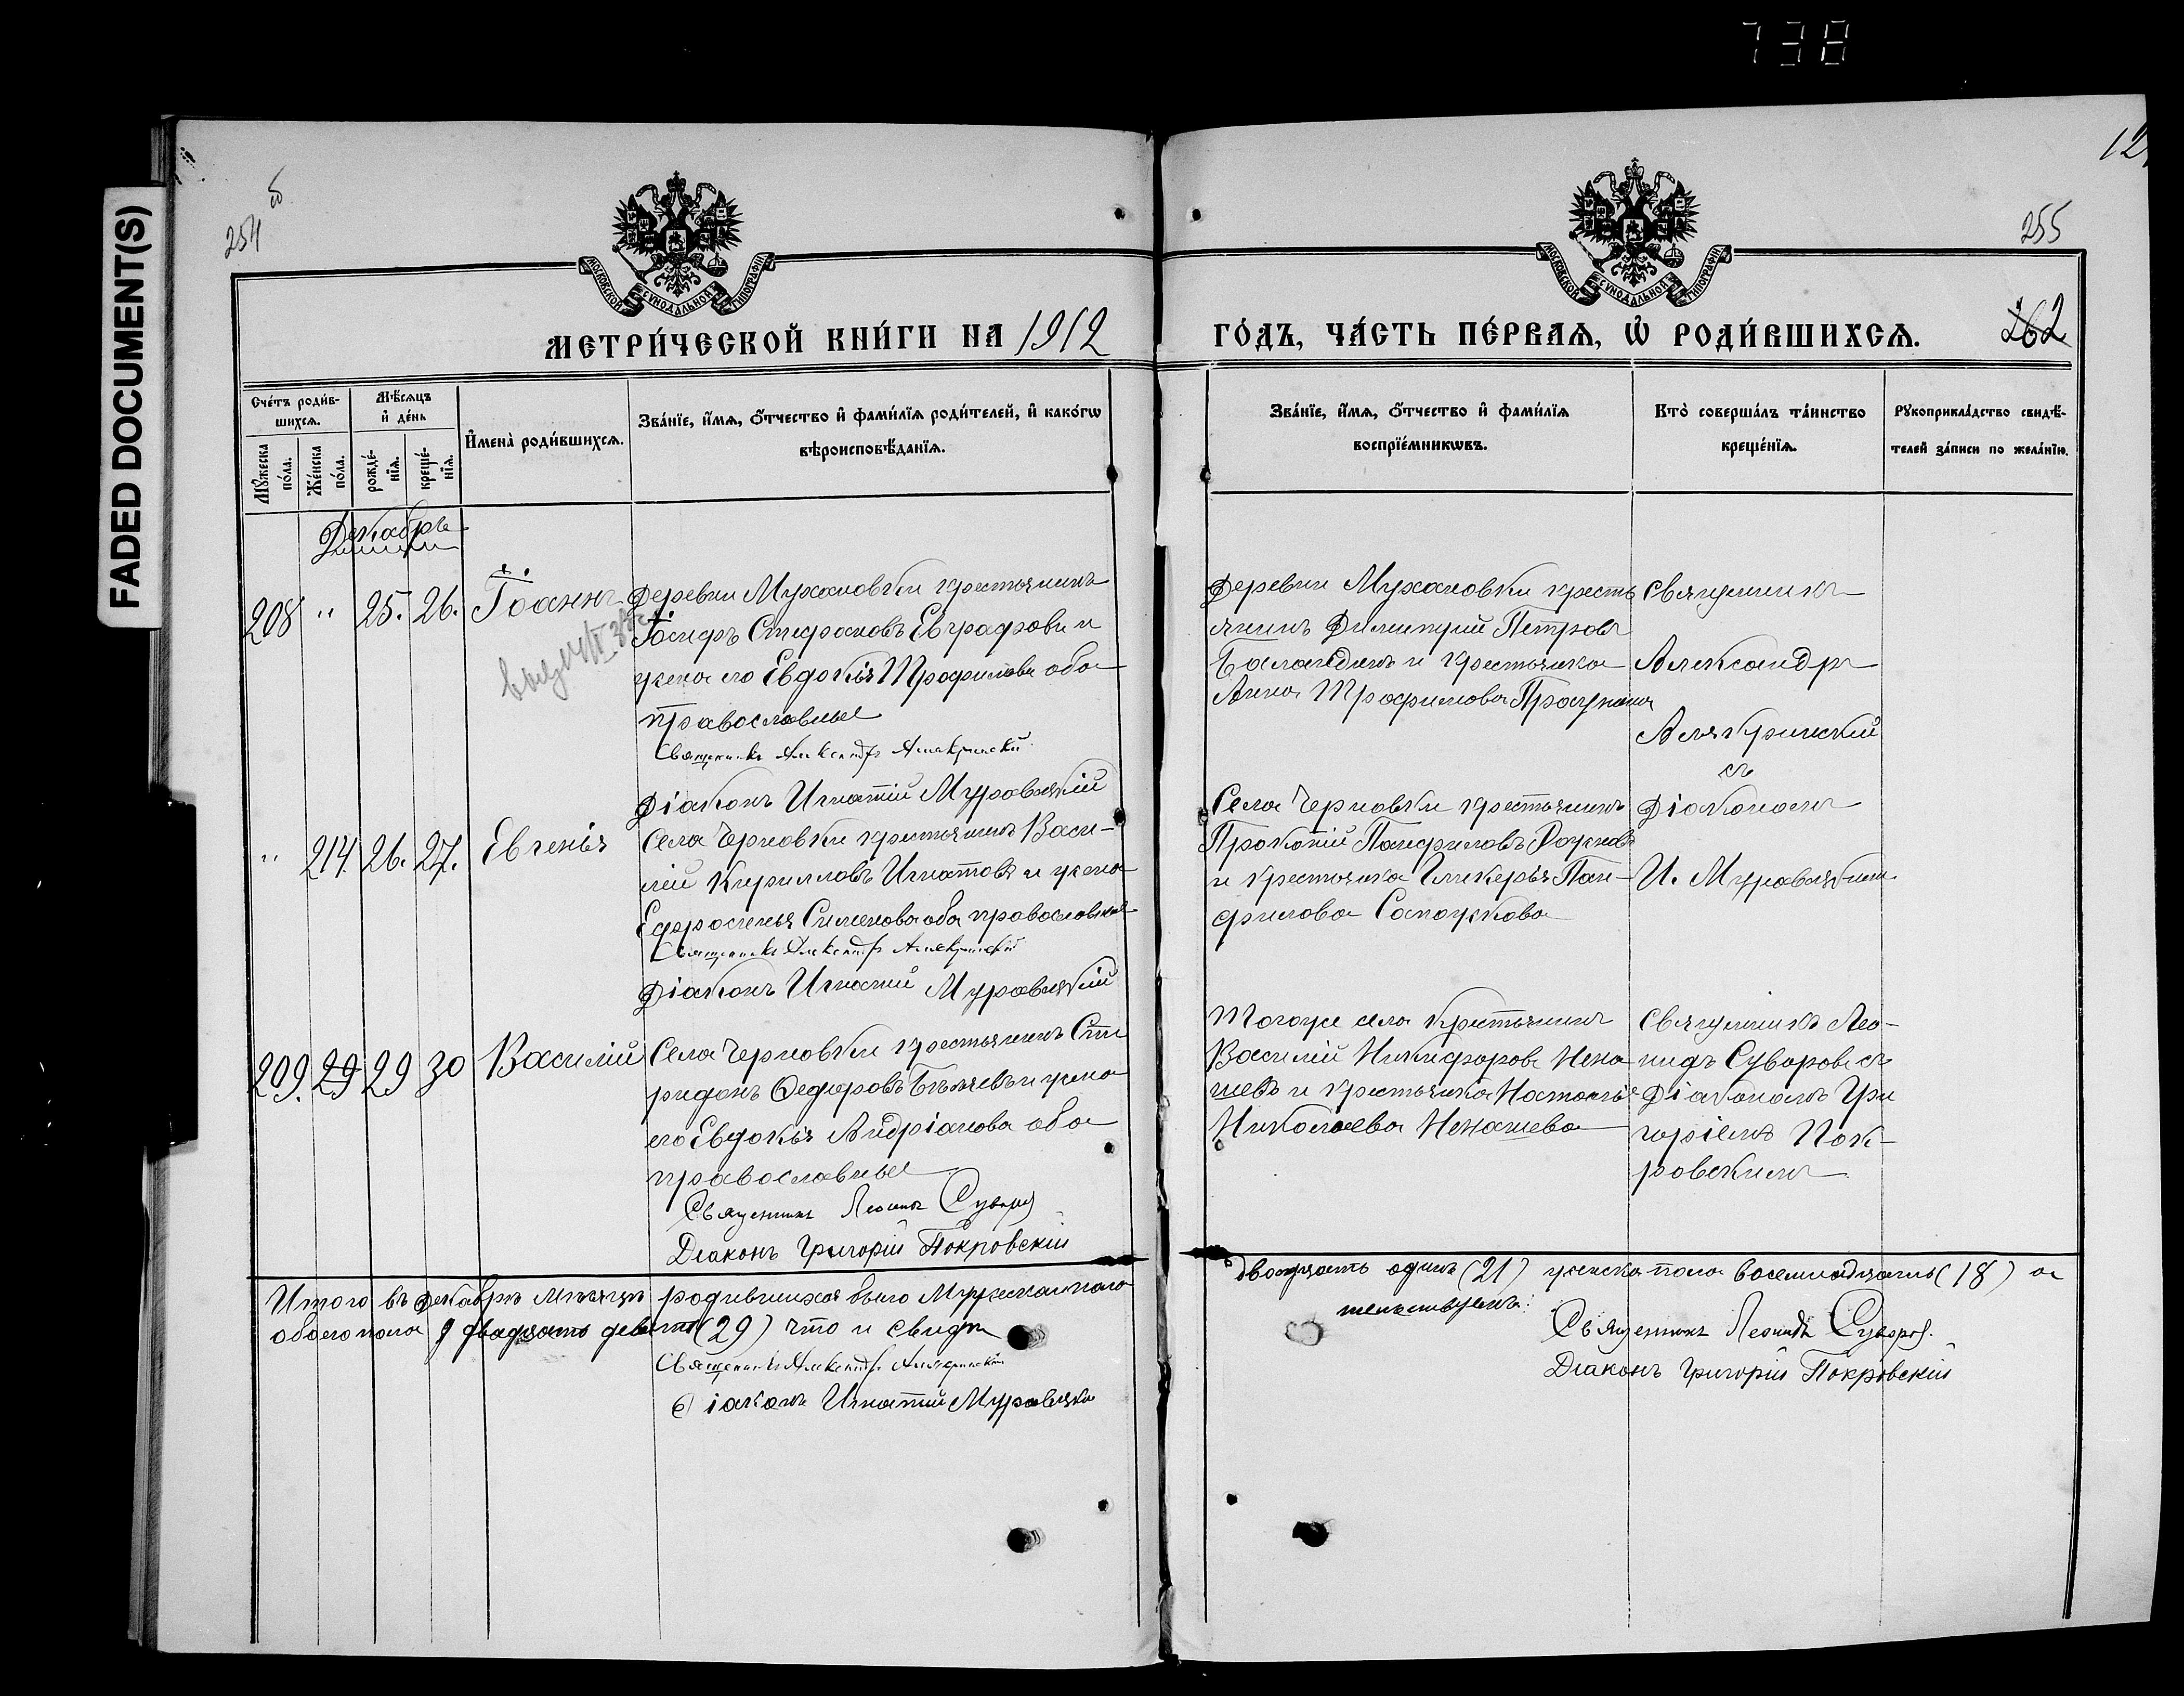 738
FADED DOCUMENT(S)
254 об
12
255
262
МОСКОВСКОЙ СѴНОДАЛЬНОЙ ТИПОГРАФІИ
МОСКОВСКОЙ СѴНОДАЛЬНОЙ ТИПОГРАФІИ
МЕТРИ́ЧЕСКОЙ КНИ́ГИ НА 1912 ГО́ДЪ, ЧА́СТЬ ПЕ́РВАѦ, Ѿ РОДИ́ВШИХСѦ.
Сче́тъ роди́в-
шихсѧ.
Мꙋжеска по́ла.
Же́нска по́ла.
Мѣ́сѧцъ
и҆ де́нь
рожде́-
нїѧ.
креще́-
нїѧ.
И҆мена̀ роди́вшихсѧ.
Зва́нїе, и҆́мѧ, ѻ҆́тчество и҆ фами́лїѧ роди́телей, и҆ како́гѡ
вѣроисповѣ́данїѧ.
Зва́нїе, и҆́мѧ, ѻ҆́тчество и҆ фами́лїѧ
воспрїе́мникѡвъ.
Кто̀ соверша́лъ та́инство
креще́нїѧ.
Рꙋкоприкла́дство свидѣ́-
телей за́писи по жела́нїю.
Декабрь
208 " 25. 26. Іоаннъ
Деревни Мухановки крестьянинъ
Іосифъ Стефановъ Евграфовъ и
жена его Евдокія Трофимова оба
православные
Священникъ Александръ Алякринскій
Діаконъ Игнатій Муравляскій
Деревни Мухановки кресть
янинъ Димитрій Петровъ
Баландинъ и крестьянка
Анна Трофимова
Священникъ
Александръ
Алякринскій
съ
Діакономъ
И. Муравляскимъ
" 214. 26. 27. Евгенія
Села Черновки крестьянинъ Васи-
лій Кирилловъ Игнатовъ и жена
Ефросинья Симеонова оба православные
Священникъ Александръ Алякринскій
Діаконъ Игнатий Муравляскій
Села Черновки крестьянинъ
Прокопій Панфиловъ
и крестьянка Гликерія Пан-
филова Сапожкова
209. 29 29 30 Василій
Села Черновки крестьянинъ Спи
ридонъ Ѳедоровъ Бѣляевъ и жена
его Евдокія Андріанова оба
православные
Священникъ Леонидъ Суворовъ
Діаконъ Григорій Покровскій
Тогоже села крестьянинъ
Василій Никифоровъ Нена
шевъ и крестьянка Настасія
Николаева Ненашева
Священникъ Лео-
нидъ Суворовъ съ
Діакономъ Гри
горіемъ Пок-
ровскимъ
Итого въ Декабрѣ мѣсяцѣ родившихся было Мужескаго пола
двадцать одинъ (21) женска пола восемнадцать (18) а
обоего пола двадцать девять (29) что и свидѣ
тельствуемъ:
Священникъ Александръ Алякринскій
Діаконъ Игнатій Муравляскій
Священникъ Леонидъ Суворовъ.
Діаконъ Григорій Покровскій